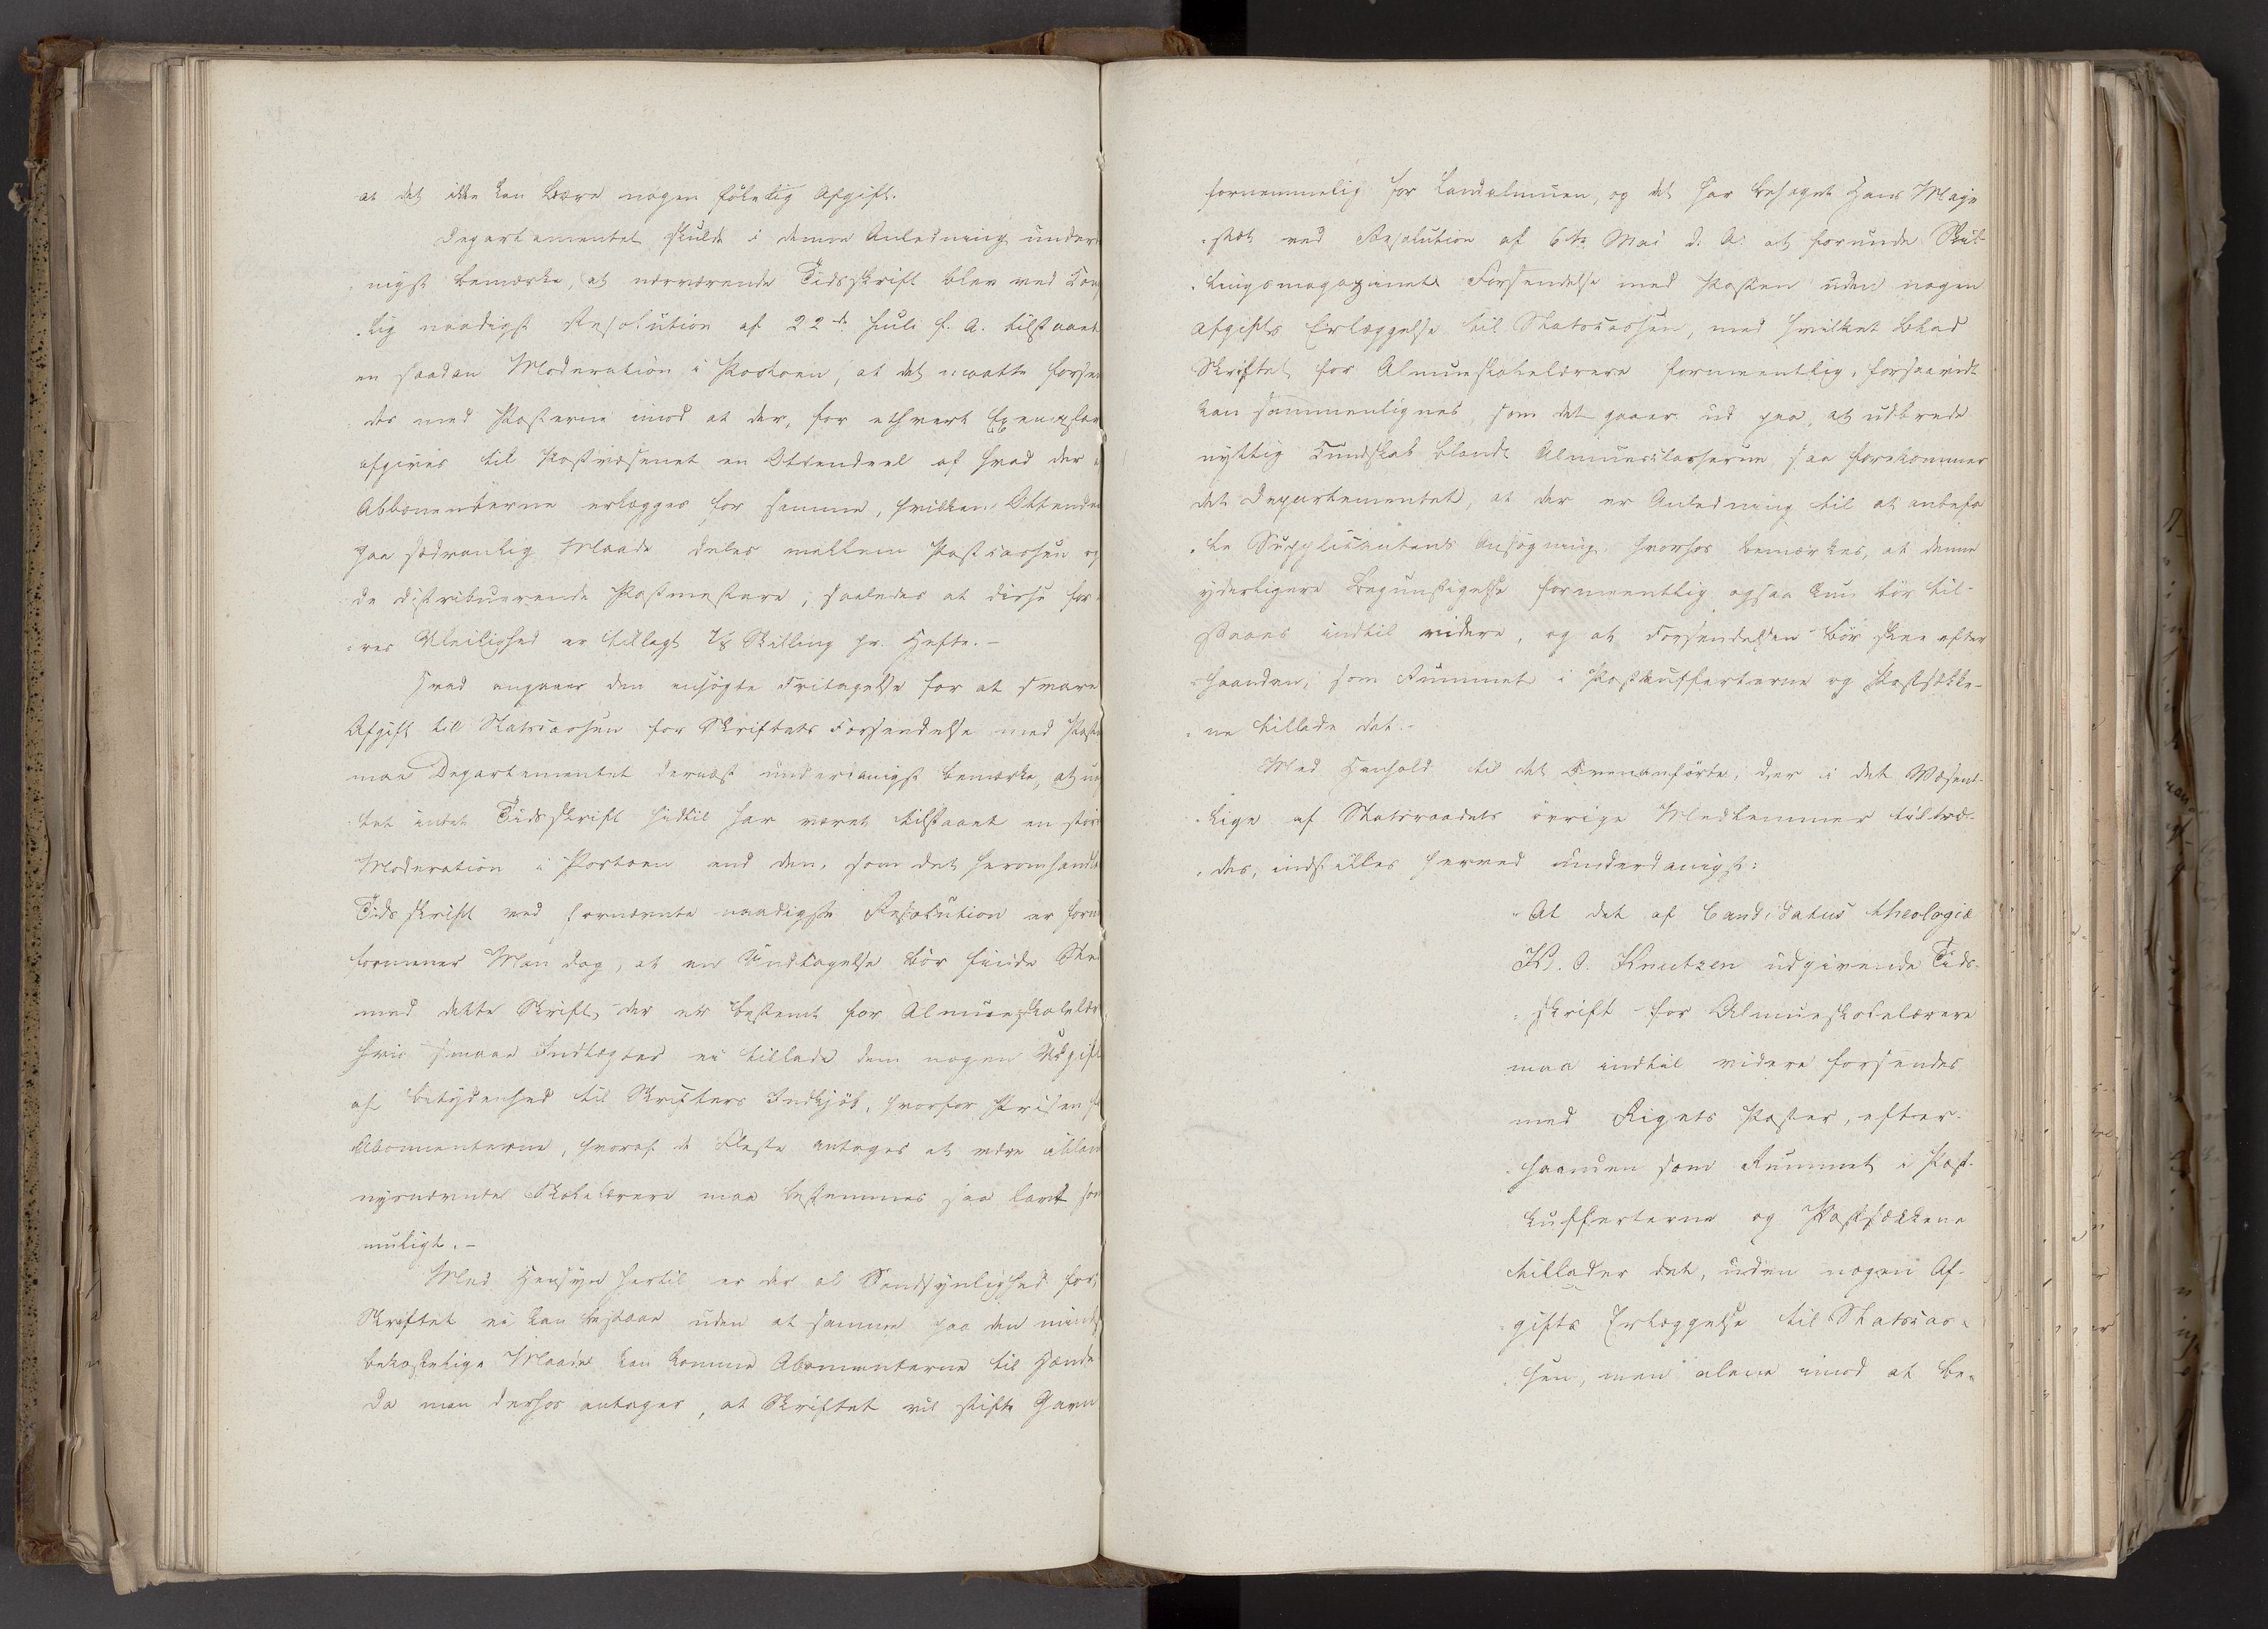 at det ikke kan bære nogen følelig Afgift.
Departementet skulde i denne Anledning under
nigst bemærke, at nærværende Tidsskrift blev ved Kon
lig naadigst Resolution af 22de Juli f. A. tilstaaet
en saadan Moderation i Portoen, at det maatte forsen
des med Posterne imod at der, for ethvert Exemplar
afgives til Postvæsenet en Ottendeel af hvad der
Abbonenterne erlægges for samme, hvilken Ottende
paa sædvanlig Maade deles mellem Postcassen og
de distribuerende Postmestere, saaledes at disse for
res Uleilighed er tillagt 1/8 Skilling pr. Hefte. -
Hvad angaaer den ansøgte Fritagelse for at svare
Afgift til Statscassen for Skriftets Forsendelse med Post
maa Departementet dernæst underdanigst bemærke, at
tet intet Tidsskrift hidtil har været tilstaaet en stør
Moderation i Portoen end den, som det heromhandl
Tidsskrift ved fornævnte naadigste Resolution er forn
formener Man dog, at en Undtagelse bør finde Ste
med dette Skrift, der er bestemt for Almueskolelær
hvis smaae Indtægter ei tillade dem nogen Udgift
af Betydenhed til Skrifters Indkjøb, hvorfor Prisen f
Abonnenterne, hvoraf de Fleste antages at være iblan
nysnævnte Skolelærere maa bestemmes saa lavt som
muligt. -
Med Hensyn hertil er der al Sandsynlighed for,
Skriftet ei kan bestaae uden at samme paa den mindst
bekostelige Maade kan komme Abonnenterne til Hænde
Da man derhos antager, at Skriftet vil stifte Gavn
fornemmelig for Landalmuen, og det har behaget Hans Maje
stæt ved Resolution af 6te Mai d. A. at forunde Skil-
lingsmagazinets Forsendelse med Posten uden nogen
Afgifts Erlæggelse til Statscassen, med hvilket Blad
Skriftet for Almueskolelærere formeentlig, forsaavidt
kan sammenlignes, som det gaaer ud paa, at udbrede
nyttig Kundskab blandt Almuesclasserne saa forekommer
det Departementet, at der er Anledning til at anbefa
le Supplicantens Ansøgning, hvorhos bemærkes, at denne
yderligere Begunstigelse formeentlig ogsaa kun bør til-
staaes indtil videre, og at Forsendelsen bør skee efter
haanden, som Rummet i Postkufferterne og Postsække-
ne tillade det. -
Med Henhold til det Ovenanførte, der i det Væsent-
lige af Statsraadets øvrige Medlemmer tiltræ-
des, indstilles herved underdanigst:
At det af Candidatus theologiæ
K. O. Knutzen udgivende Tids-
skrift for Almueskolelærere
maa indtil videre forsendes
med Rigets Poster, efter-
haanden som Rummet i Post-
kufferterne og Postsækkene
tillader det, uden nogen Af-
gifts Erlæggelse til Statscas-
sen, men alene imod at be-